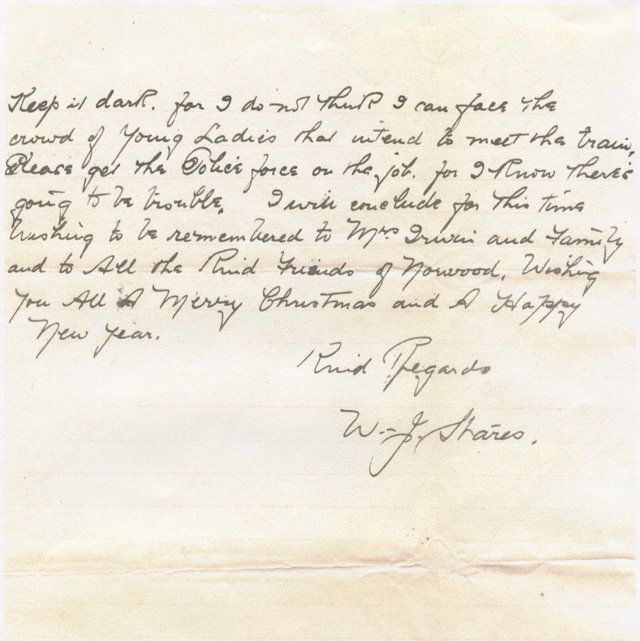 Keep it dark. for I do not think I can face the
crowd of Young Ladies that intend to meet the train,
Please get the Police force on the job. for I Know there's
going to be trouble. I will conclude for this time
trusting to be remembered to Mrs Irwin and Family
and to All the Kind Friends of Norwood. Wishing
you All A Merry Christmas and A Happy
New Year.
Kind Regards
W. J. Shares.